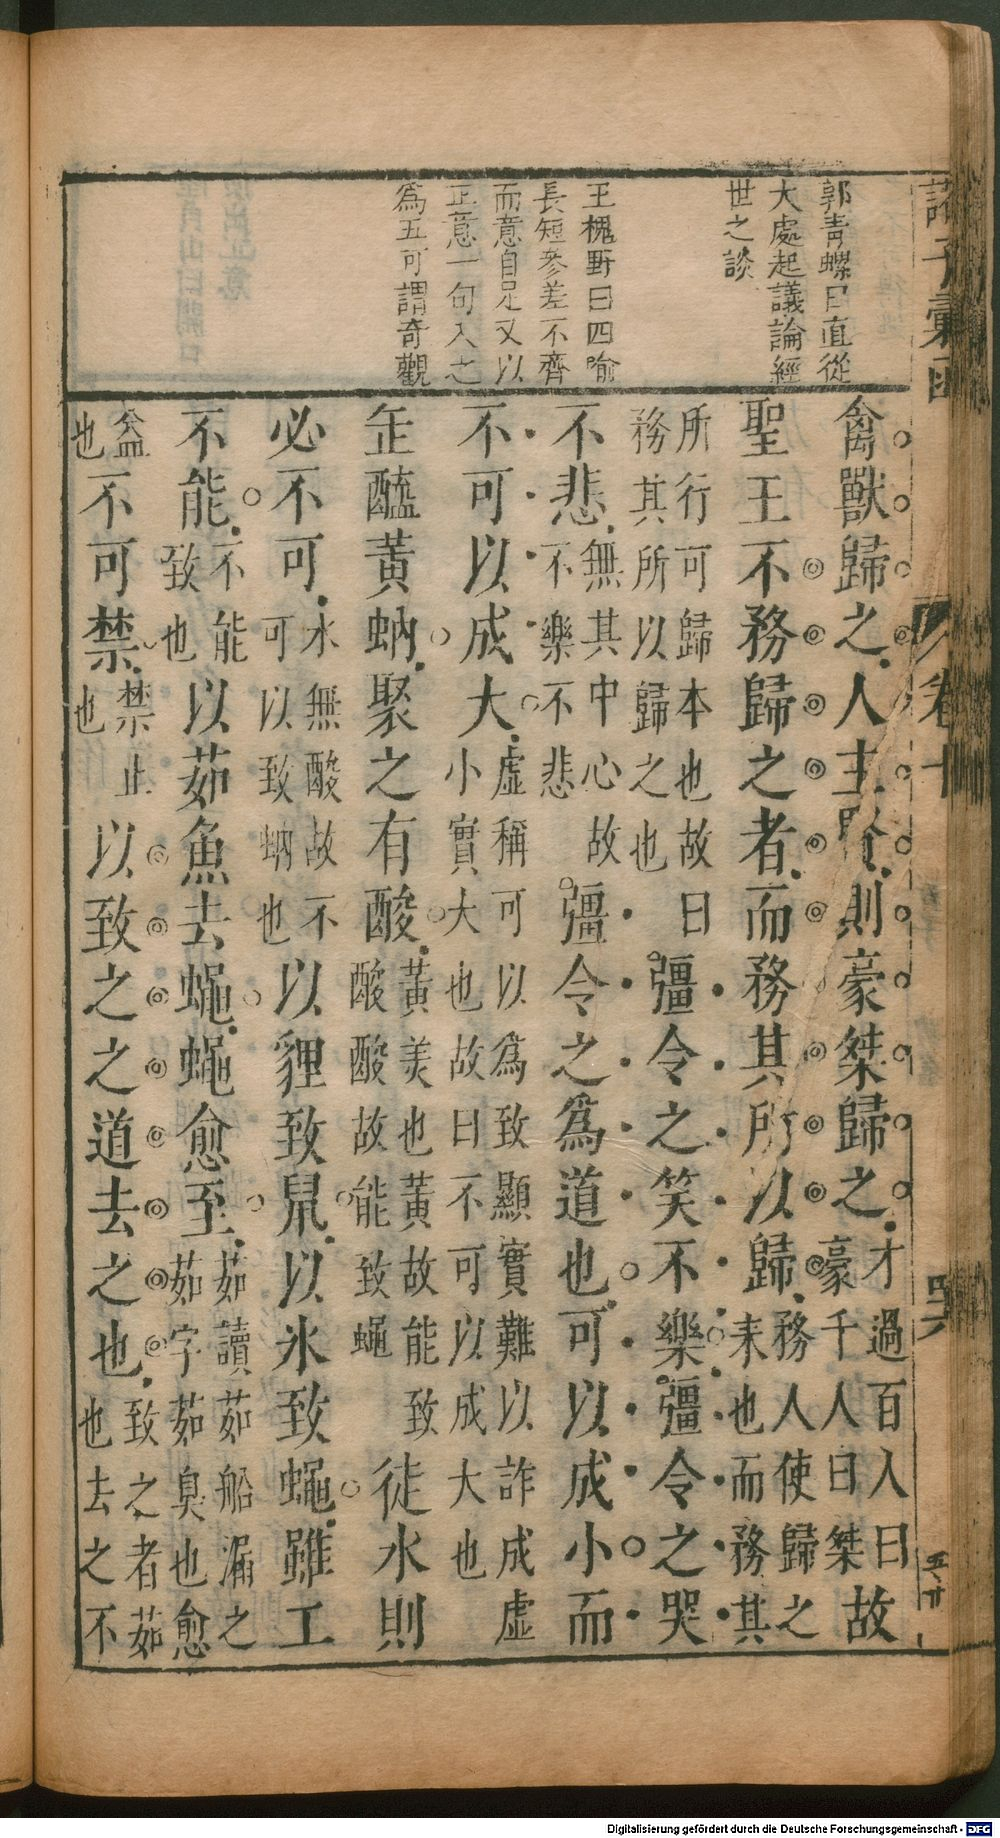 郭青螺曰直從
大處起議論經
世之談
王槐野曰四喻
長短參差不齊
而意自足又以
正意一句入之
為五可謂奇觀
禽獸歸之人主賢則豪桀歸之才過百人曰豪千人曰桀故
聖王不務歸之者而務其所以歸務人使歸之末也而務其
所行可歸本也故曰務其所以歸之也彊令之笑不樂彊令之哭
不悲無其中心故不樂不悲彊令之為道也可以成小而
不可以成大虛稱可以為致顯實難以詐成虛小實大也故曰不可以成大也
缶醯黃蚋聚之有酸黃美也黃故能致酸酸故能致蠅徒水則
必不可水無酸故不可以致蚋也以貍致鼠以氷致蠅雖工
不能不能致也以茹魚去蠅蠅愈至茹讀茹船漏之茹字茹臭也愈
益也不可禁禁止也以致之之道去之也致之者茹也去之不
諸子彙函
卷十
四六
五廿
Digitalisierung gefördert durch die Deutsche Forschungsgemeinschaft - DFG